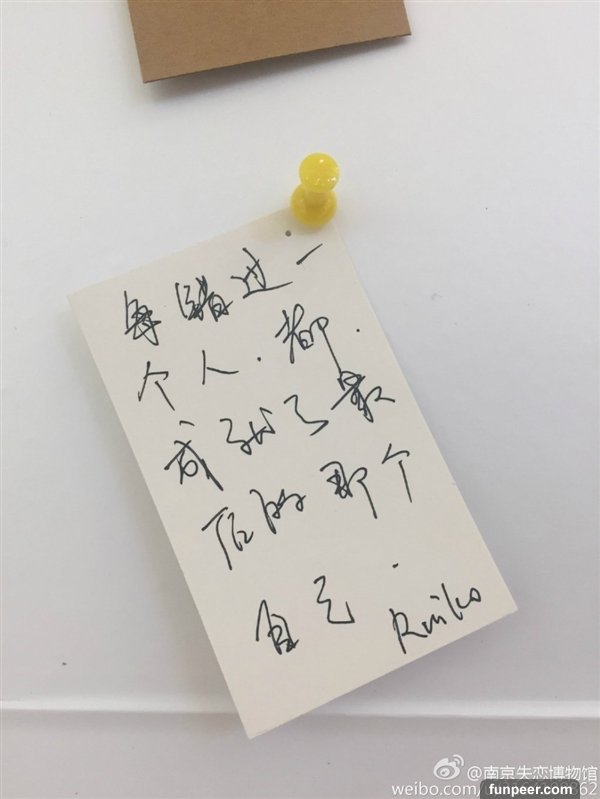 每错过一
个人.都.
成就了最
后的那个
自己.
Ruiko
@南京失恋博物馆
weibo.com/
62
funpeer.com